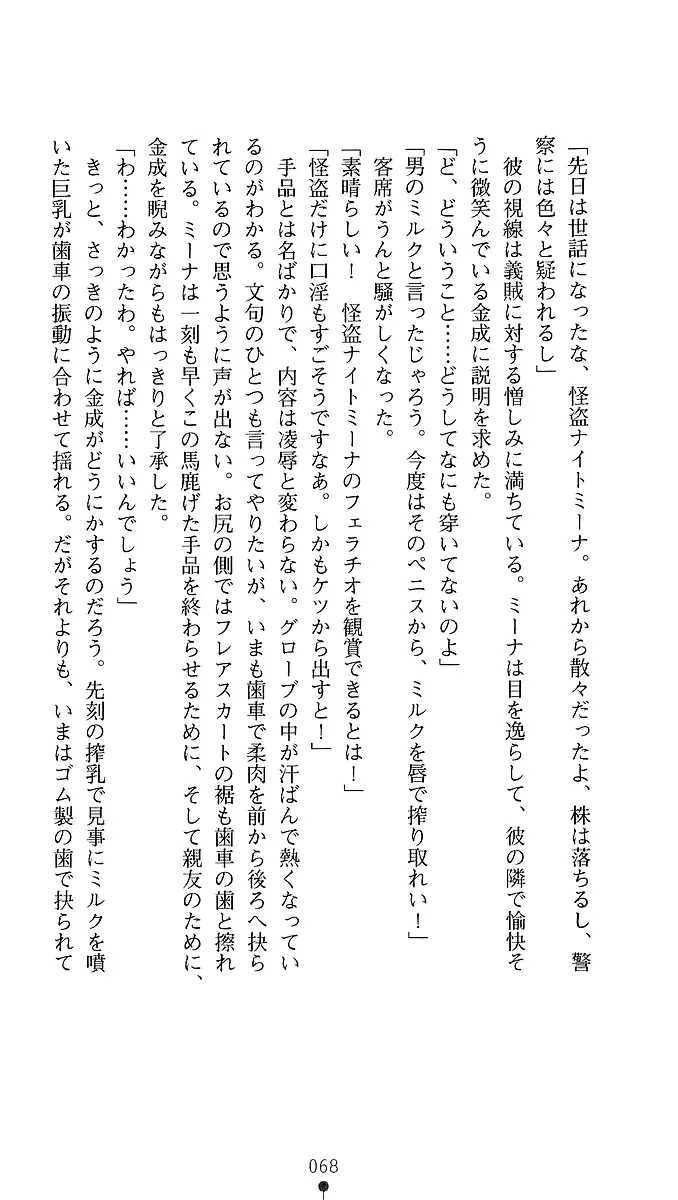 「先日は世話になったな、怪盗ナイトミーナ。あれから散々だったよ、株は落ちるし、警
察には色々と疑われるし」
　彼の視線は義賊に対する憎しみに満ちている。ミーナは目を逸らして、彼の隣で愉快そ
うに微笑んでいる金成に説明を求めた。
「ど、どういうこと……どうしてなにも穿いてないのよ」
「男のミルクと言ったじゃろう。今度はそのペニスから、ミルクを唇で搾り取れい！」
　客席がうんと騒がしくなった。
「素晴らしい！　怪盗ナイトミーナのフェラチオを観賞できるとは！」
「怪盗だけに口淫もすごそうですなあ。しかもケツから出すと！」
　手品とは名ばかりで、内容は凌辱と変わらない。グローブの中が汗ばんで熱くなってい
るのがわかる。文句のひとつも言ってやりたいが、いまも歯車で柔肉を前から後ろへ抉ら
れているので思うように声が出ない。お尻の側ではフレアスカートの裾も歯車の歯と擦れ
ている。ミーナは一刻も早くこの馬鹿げた手品を終わらせるために、そして親友のために、
金成を睨みながらもはっきりと了承した。
「わ……わかったわ。やれば……いいんでしょう」
　きっと、さっきのように金成がどうにかするのだろう。先刻の搾乳で見事にミルクを噴
いた巨乳が歯車の振動に合わせて揺れる。だがそれよりも、いまはゴム製の歯で抉られて
068